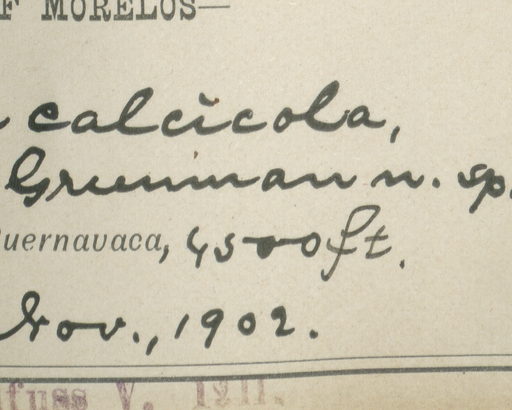 F MORELOS—
calcicola,
Greenman n. sp.
uernavaca, 4500 ft.
Nov., 1902.